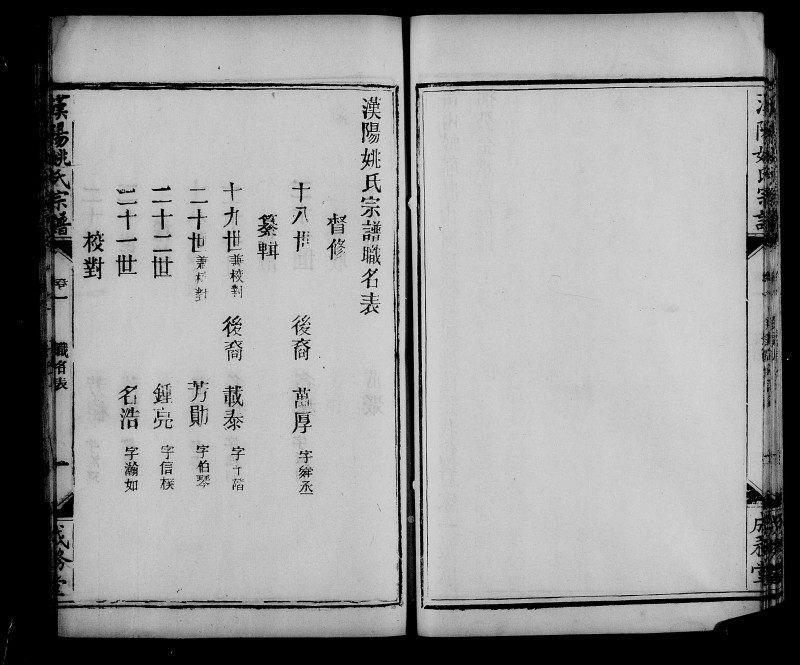 漢陽姚氏宗譜職名表
督修
十八世 後裔 萬厚 字舜丞
纂輯
十九世兼校對 後裔 載泰 字階
二十世兼校對 芳勛 字伯琴
二十二世 鍾亮 字信模
二十一世 名浩 字瀚如
校對
漢陽姚氏宗譜 卷一 職名表 一 成務堂
漢陽姚氏宗譜 成務堂